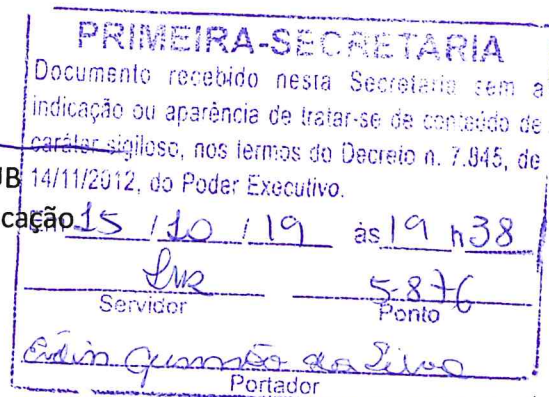 PRIMEIRA-SECRETARIA
Documento recebido nesta Secretaria sem a
indicação ou aparência de tratar-se de conteúdo de
caráter sigiloso, nos termos do Decreto n. 7.845, de
UB 14/11/2012, do Poder Executivo.
cação Em 15 / 10 / 19 às 19 h 38
5.876
Servidor Ponto
da Silva
Portador